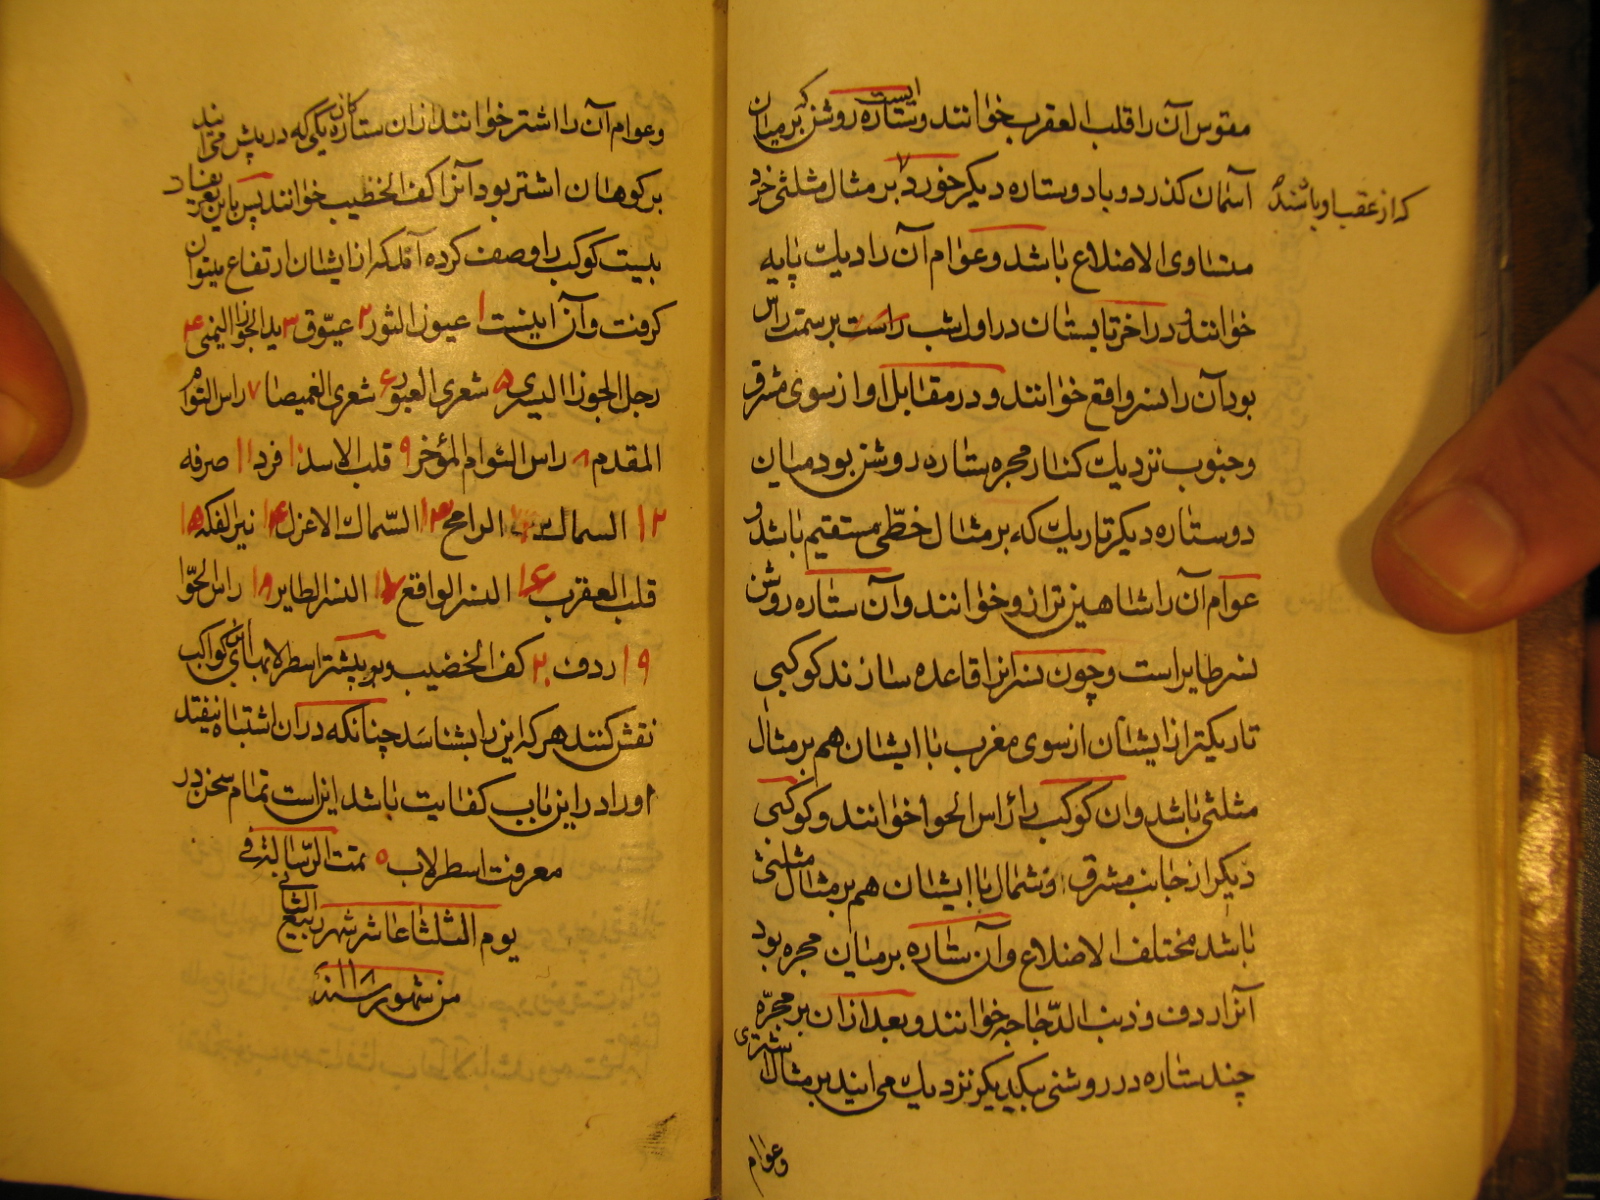 مقوس آن را قلب العقرب خوانند و ستاره روشن که بر میان
ایست
آسمان کذرد و با دو ستاره دیکر خورد بر مثال مثلثی خرد
که از عقب او باشند
متساوی الاضلاع باشد و عوام آن را دیك پایه
خوانند و در آخر تابستان در اول شب راست بر سمت راس
بود آن را نسر واقع خوانند و در مقابل او از سوی مشرق
و جنوب نزدیك کنار مجره ستاره روشن بود میان
دو ستاره دیکر تاریك که بر مثال خطی مستقیم باشد و
عوام آن را شاهین ترازو خوانند و آن ستاره روشن
نسر طایر است و چون نسرین را قاعده سازند کوکبی
تاریکتر از ایشان از سوی مغرب با ایشان هم بر مثال
مثلثی باشد و ان کوکب را راس الحوا خوانند و کوکبی
دیکر از جانب مشرق و شمال با ایشان هم بر مثال مثلثی
باشد مختلف الاضلاع و آن ستاره بر میان مجره بود
آنرا ردف و ذنب الدجاجه خوانند و بعد از ان بر مجره
چند ستاره در روشنی بیکدیکر نزدیك می ایند بر مثال شتری
وعوام
وعوام آن را اشتر خوانند از ان ستارکان یکی که در پیش می ایند
بر کوهان اشتر بود آنرا کف الخظیب خوانند پس باین تعریفات
بیست کوکب را وصف کرده آمد که از ایشان ارتفاع میتوان
کرفت و آن اینست ۱ عیون الثور ۲ عیوق ۳ ید الجوزا الیمنی ۴
رجل الجوزا الیسری ۵ شعری العبور ۶ شعری الغمیصا ۷ راس التوام
المقدم ۸ راس التوام المؤخر ۹ قلب الاسد ۱۰ فرد ۱۱ صرفه
۱۲ السماك الرامح ۱۳ السماك الاعزل ۱۴ نیر الفکه ۱۵
قلب العقرب ۱۶ النسر الواقع ۱۷ النسر الطایر ۱۸ راس الحوا
۱۹ ردف ۲۰ کف الخضیب و بر بیشتر اسطرلابها این کواکب
نقش کنند هر که این را بشناسد چنانکه در ان اشتباه نیفتد
او را در این باب کفایت باشد اینست تمام سخن در
معرفت اسطرلاب ه تمت الرسالة فی
یوم الثلثا عاشر شهر ربیع الثانی
من شهور سنه ۱۱۸